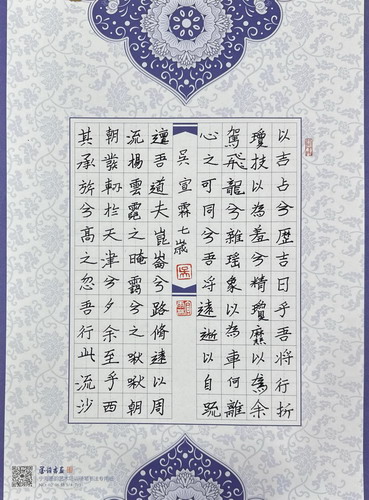 以吉占兮歷吉日乎吾將行折
瓊技以為羞兮精瓊爢以為余
駕飛龍兮雜瑤象以為車何離
心之可同兮吾將遠逝以自疏
吳宣霖七歲
邅吾道夫崑崙兮路脩遠以周
流揚雲霓之晻靄兮之啾啾朝
朝發軔於天津兮夕余至乎西
其承旂兮高之忽吾行此流沙